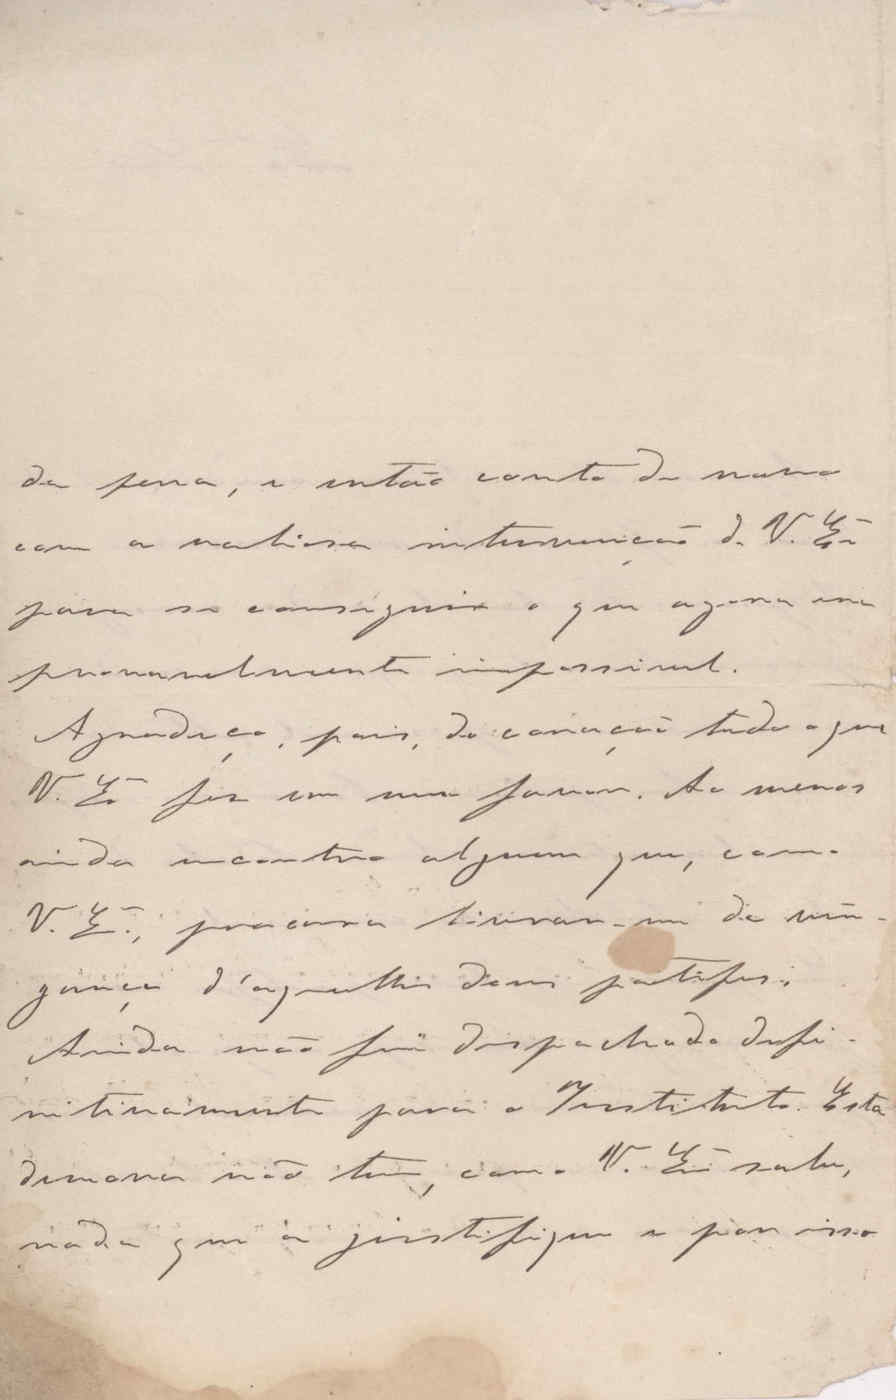 da pena, e então conto de novo
com a valiosa intervenção de V. Exª
para se conseguir o que agora era
provavelmente impossivel.
Agradeço, pois, do coração tudo o que
V. Exª fez em meu favor. Ao menos
ainda encontro alguem que, como
V. Exª, procura livrar-me da vin-
gança d'aquelles dous patifes.
Ainda não fui despachado defi-
nitivamente para o Instituto. Esta
demora não tem, como V. Exª sabe,
nada que a justifique e por isso